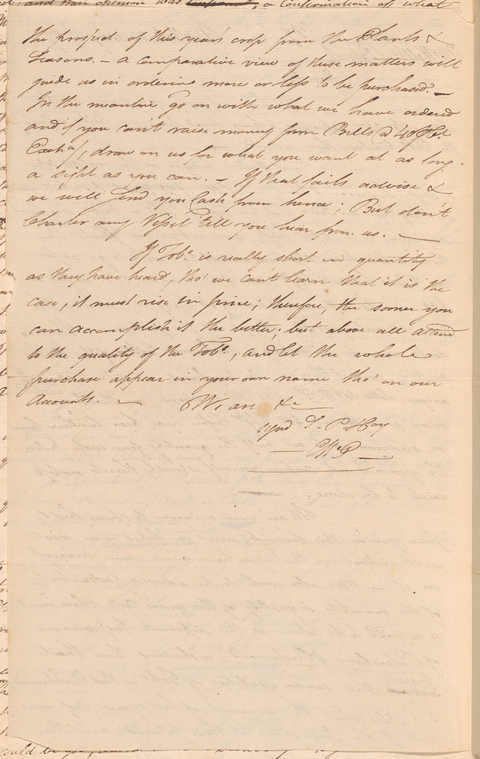 and their opinion was a confirmation of what
the prospect of this years crop from the Plants &
Seasons. – a comparative view of these matters will
guide us in ordering more or less to be purchased. –
In the meantime go on with what we have ordered
and if you can't raise money from Bills @ 40
Exch., draw on us for what you want at as long
a sight as you can. – If that fails advise &
we will send you Cash from hence; But don't
Charter any Vessel till you hear from us. –
If Tobo. is really short in quantity
as they have heard, tho' we can't learn that it is the
case, it must rise in price; therefore, the sooner you
can accomplish it the better; but above all attend
to the quality of the Tobo., and let the whole
purchase appear in your own name tho' on our
Accounts. –
We are &c
sign'd T. P. & Coy